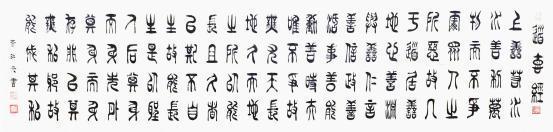 道悳經
上善若水
水善利萬
物而不爭
處眾人之
所惡故幾
于道居善
地心善淵
與善仁言
善信政善
治事善能
動善時夫
唯不爭故
無尤天長
地久天地
之所以能
長且久者
以其不自
生故能長
生是以聖
人後其身
而身先外
其身而身
存非以其
無私邪故
能成其私